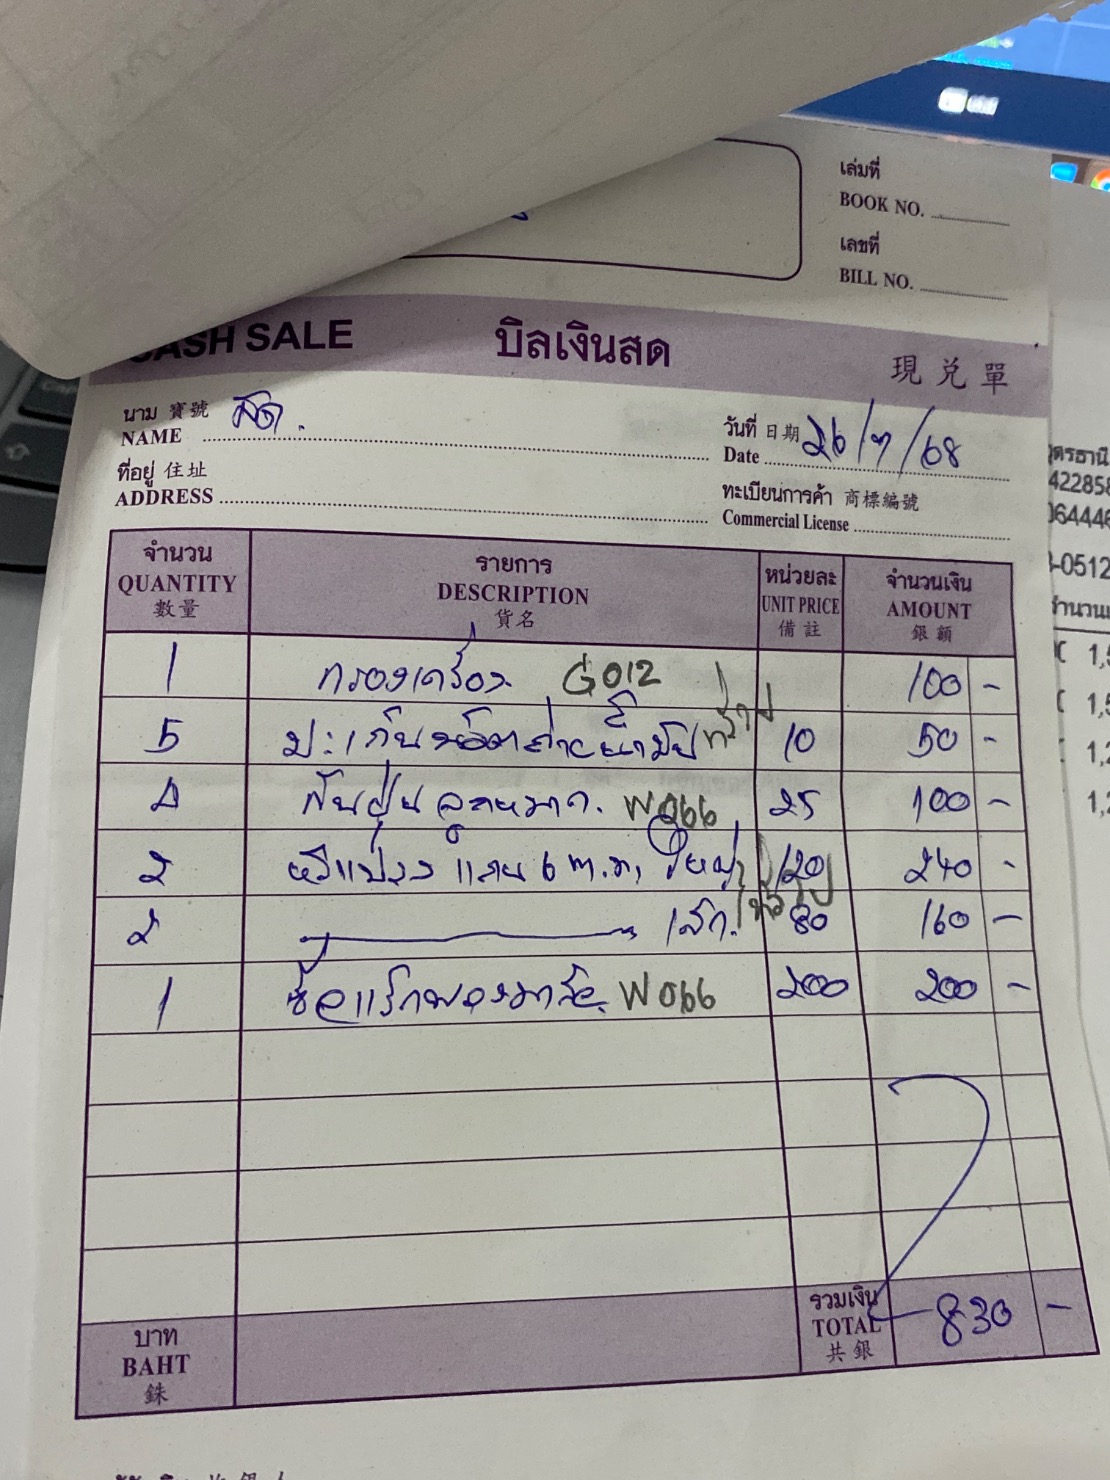 เล่มที่
BOOK NO.
เลขที่
BILL NO.
CASH SALE บิลเงินสด 現兑單
นาม 寳號 สด.
NAME
วันที่ 日期 26/7/68
Date
ที่อยู่ 住址
ADDRESS
ทะเบียนการค้า 商標編號
Commercial License
จำนวน รายการ หน่วยละ จำนวนเงิน
QUANTITY DESCRIPTION UNIT PRICE AMOUNT
數量 貨名 備註 銀額
1 กรองเครื่อง G012 100 -
5 ปะเก็นน๊อตถ่ายน้ำมัน 10 50 -
4 กันฝุ่นลูกหมาก. W066 25 100 -
2 แกน 6 ม.ม. ใหญ่ 120 240 -
2 เล็ก. 80 160 -
1 W066 200 200 -
บาท รวมเงิน
BAHT TOTAL 830 -
銖 共銀
ุดรธานี
42285
06444
-0512
1,
1,
1,2
1,